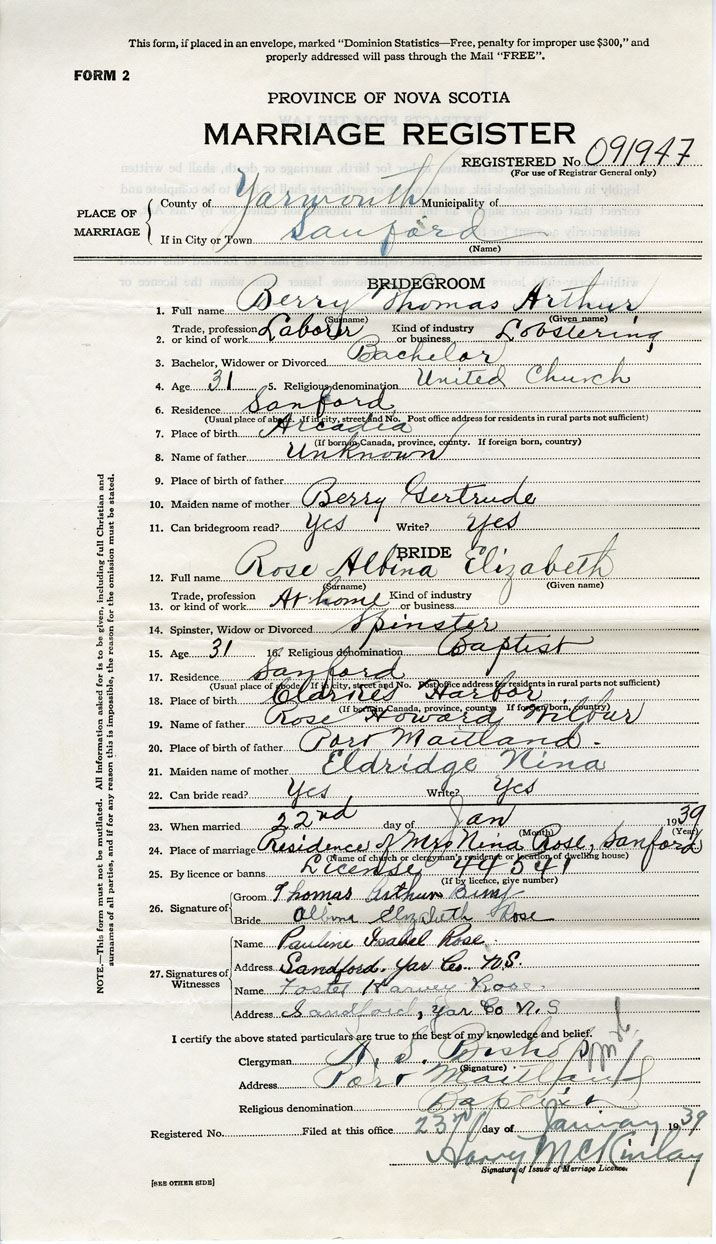 This form, if placed in an envelope, marked "Dominion Statistics—Free, penalty for improper use $300," and
properly addressed will pass through the Mail "FREE".
FORM 2
PROVINCE OF NOVA SCOTIA
MARRIAGE REGISTER
REGISTERED No. 091947
(For use of Registrar General only)
PLACE OF MARRIAGE
County of Yarmouth Municipality of
If in City or Town Sanford
(Name)
BRIDEGROOM
1. Full name Berry Thomas Arthur
(Surname) (Given name)
2. Trade, profession or kind of work Laborer Kind of industry or business Lobstering
3. Bachelor, Widower or Divorced Bachelor
4. Age 31 5. Religious denomination United Church
6. Residence Sanford
(Usual place of abode. If in city, street and No. Post office address for residents in rural parts not sufficient)
7. Place of birth Arcadia
(If born in Canada, province, county. If foreign born, country)
8. Name of father Unknown
9. Place of birth of father
10. Maiden name of mother Berry Gertrude
11. Can bridegroom read? Yes Write? Yes
BRIDE
12. Full name Rose Albina Elizabeth
(Surname) (Given name)
13. Trade, profession or kind of work At home Kind of industry or business
14. Spinster, Widow or Divorced Spinster
15. Age 31 16. Religious denomination Baptist
17. Residence Sanford
(Usual place of abode. If in city, street and No. Post office address for residents in rural parts not sufficient)
18. Place of birth Clarkes Harbor
(If born in Canada, province, county. If foreign born, country)
19. Name of father Rose Howard Wilbur
20. Place of birth of father Port Maitland.
21. Maiden name of mother Eldridge Nina
22. Can bride read? Yes Write? Yes
23. When married 22nd day of Jan 1939
(Month) (Year)
24. Place of marriage Residence of Mrs Nina Rose, Sanford
(Name of church or clergyman's residence or location of dwelling house)
25. By licence or banns License 44541
(If by licence, give number)
26. Signature of
Groom Thomas Arthur Berry
Bride Albina Elizabeth Rose
27. Signatures of Witnesses
Name Pauline Isabel Rose
Address Sandford. Yar Co. N.S.
Name Foster Harvey Rose
Address Sandford, Yar Co N.S
I certify the above stated particulars are true to the best of my knowledge and belief.
Clergyman A. S. Bishop
(Signature)
Address Port Maitland
Religious denomination Baptist
Registered No. Filed at this office 23rd day of January 1939
Harry McKinlay
Signature of Issuer of Marriage Licence.
[SEE OTHER SIDE]
NOTE.—This form must not be mutilated. All information asked for is to be given, including full Christian and
surnames of all parties, and if for any reason this is impossible, the reason for the omission must be stated.